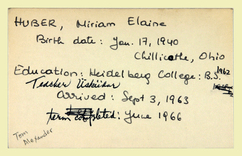 HUBER, Miriam Elaine
Birth date: Jan. 17, 1940
Chillicothe, Ohio
Education: Heidelberg College: B.S. 1962
Teacher Üsküdar
Arrived: Sept 3, 1963
term completed: June 1966
Tom
Alexander